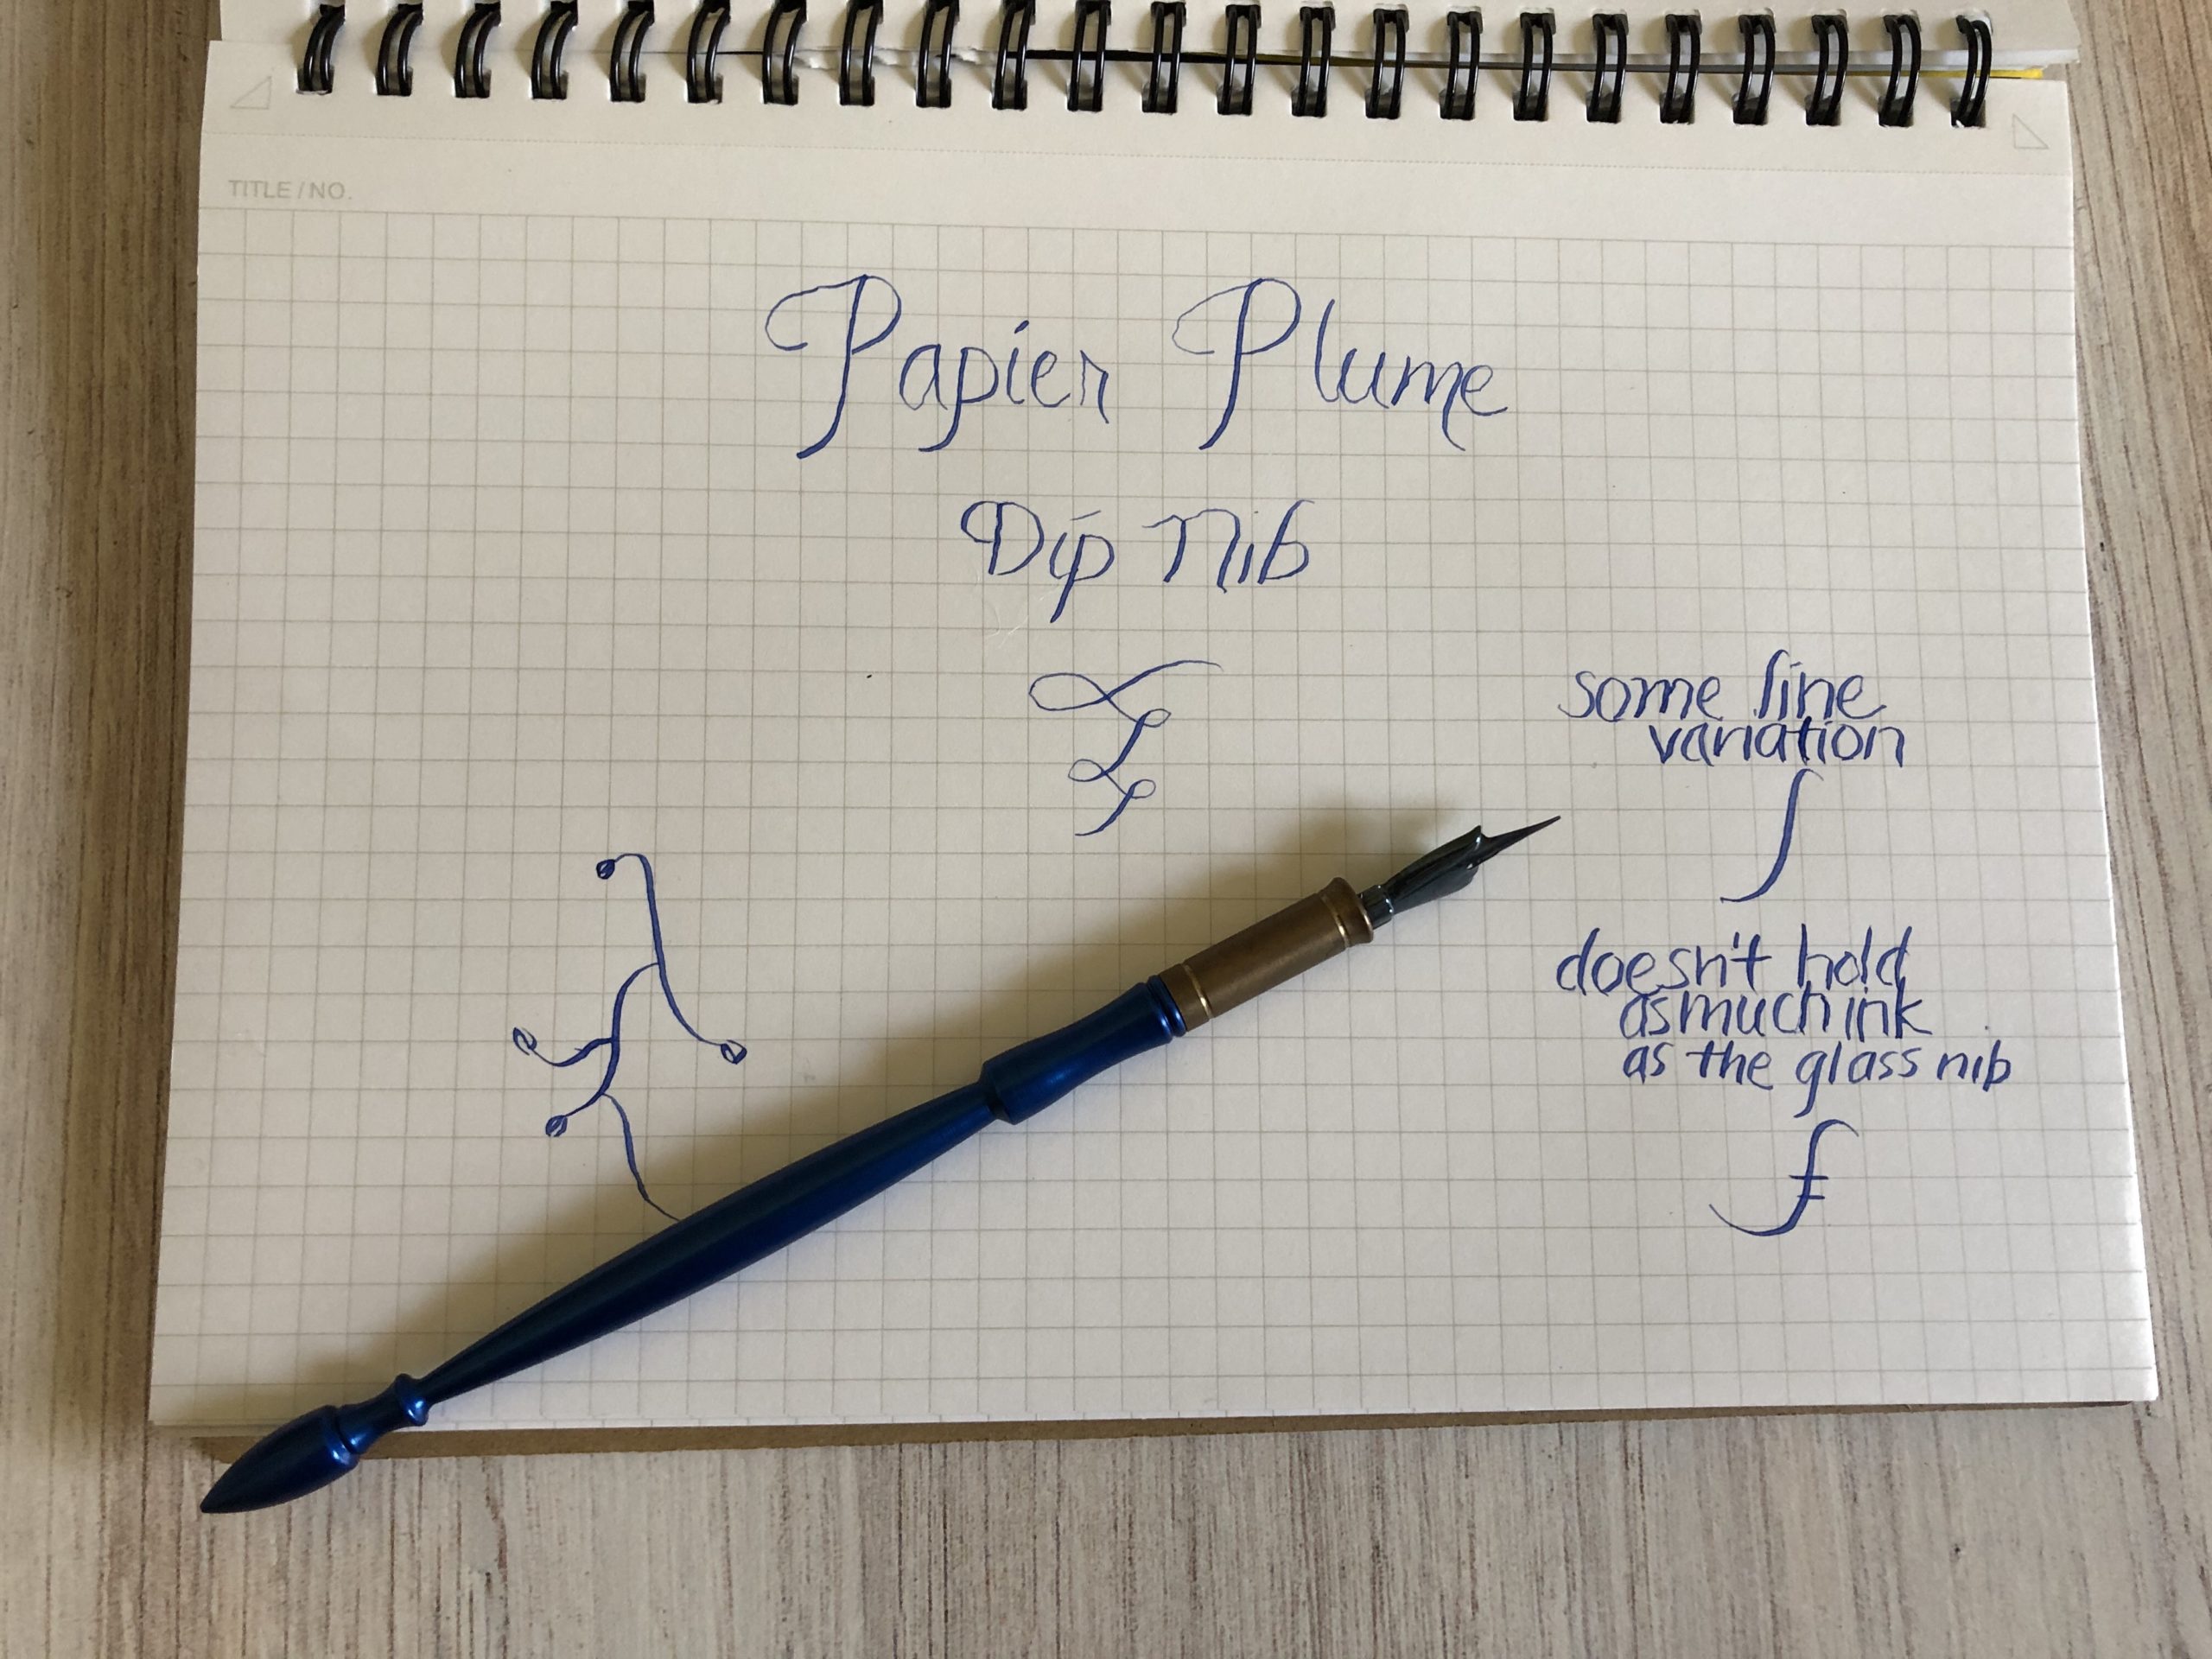 TITLE / NO.
Papier Plume
Dip Nib
some line
variation
doesn't hold
as much ink
as the glass nib